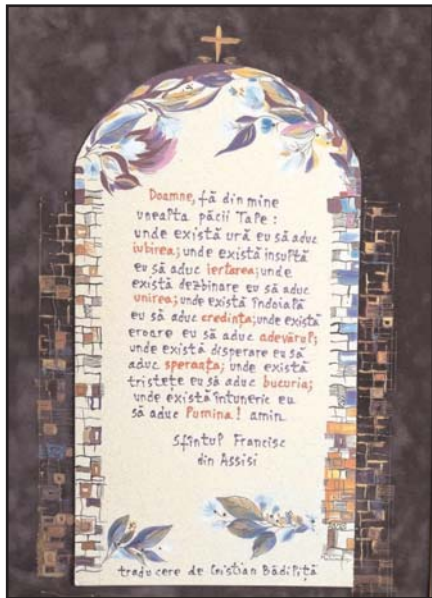 Doamne, fă din mine
unealta păcii Tale:
unde există ură eu să aduc
iubirea; unde există insultă
eu să aduc iertarea; unde
există dezbinare eu să aduc
unirea; unde există îndoială
eu să aduc credința; unde există
eroare eu să aduc adevărul;
unde există disperare eu să
aduc speranța; unde există
tristețe eu să aduc bucuria;
unde există întuneric eu
să aduc lumina! amin
Sfîntul Francisc
din Assisi
traducere de Cristian Bădiliță